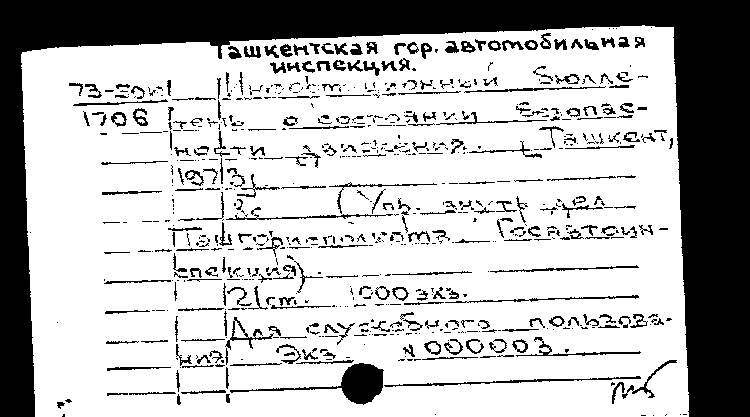 Ташкентская гор. автомобильная
инспекция.
73-50к Информационный бюлле-
1706 тень о состоянии безопас-
ности движения. [Ташкент,
1973]
2с (Упр. внутр. дел
Ташгорисполкома. Госавтоин-
спекция).
2/ст. 1000 экз.
Для служебного пользова-
ния. Экз. №000003.